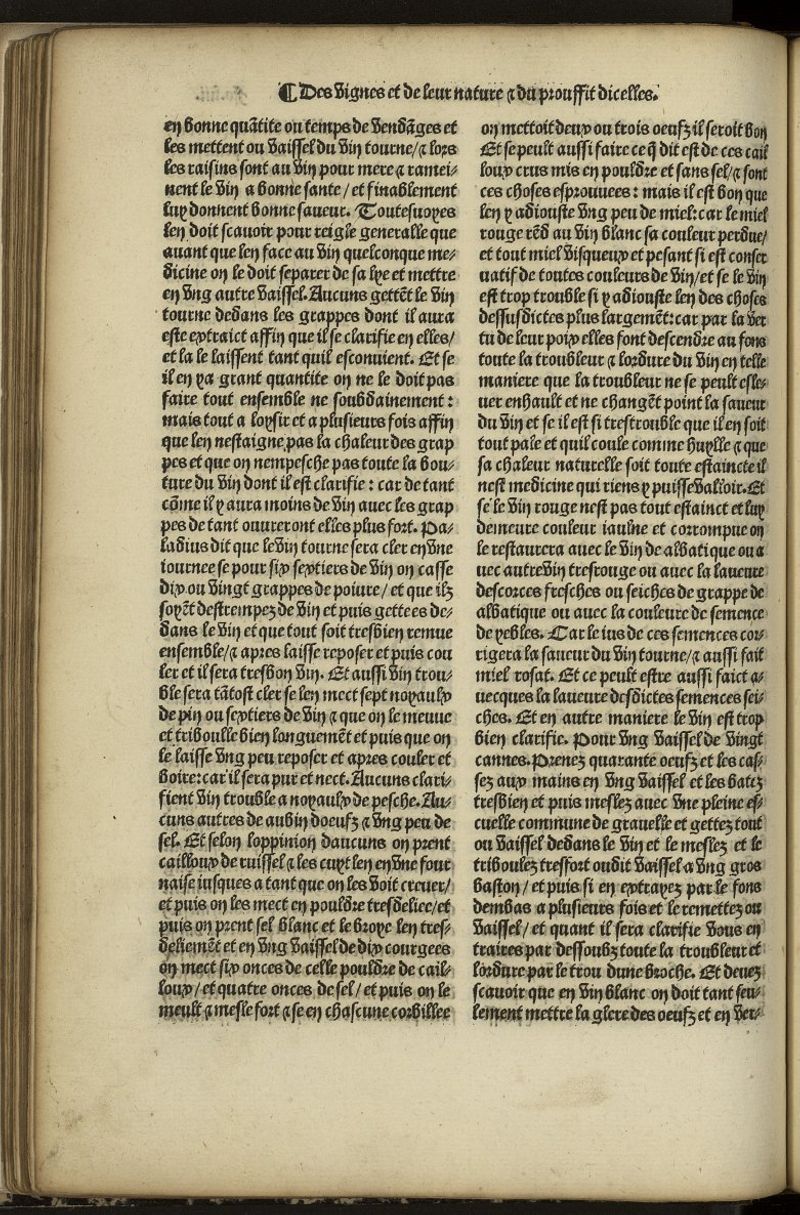 ¶ Des vignes et de leur nature ⁊ du prouffit dicelles.
en bonne quãtite ou temps de vendãges et
les mettent ou vaissel du vin tourne/⁊ lors
les raisins font au vin pour mere ⁊ ramei-
nent le vin a bonne sante / et finablement
luy donnent bonne saueur. Toutesuoyes
len doit scauoir pour reigle generalle que
auant que len face au vin quelconque me-
dicine on le doit separer de sa lye et mettre
en vng autre vaissel. Aucuns gettẽt le vin
tourne dedans les grappes dont il aura
este extraict affin que il se clarifie en elles/
et la le laissent tant quil esconuient. Et se
il en ya grant quantite on ne le doit pas
faire tout ensemble ne soubdainement :
mais tout a loysir et a plusieurs fois affin
que len nestaigne pas la chaleur des grap
pes et que on nempesche pas toute la bou-
ture du vin dont il est clarifie : car de tant
cõme il y aura moins de vin auec les grap
pes de tant ouureront elles plus fort. Pa-
ladius dit que le vin tourne sera cler en vne
iournee se pour six sextiers de vin on casse
dix ou vingt grappes de poiure / et que ilz
soyẽt destrempez de vin et puis gettees de-
dans le vin et que tout soit tresbien remue
ensemble/⁊ apres laisse reposer et puis cou
ler et il sera tresbon vin. Et aussi vin trou-
ble sera tãtost cler se len mect sept noyaulx
de pin ou sextiers de vin ⁊ que on le meuue
et triboulle bien longuemẽt et puis que on
le laisse vng peu reposer et apres couler et
boire: car il sera pur et nect. Aucuns clari-
fient vin trouble a noyaulx de pesche. Au-
cuns autres de aubin doeufz ⁊ vng peu de
sel. Et selon loppinion daucuns on prent
cailloux de ruissel ⁊ les cuyt len en vne four
naise iusques a tant que on les voit creuer/
et puis on les mect en pouldre tresdeliee/et
puis on prent sel blanc et le broye len tres-
deliemẽt et en vng vaissel de dix courgees
on mect six onces de celle pouldre de cail-
loux / et quatre onces de sel / et puis on le
meult ⁊ mesle fort ⁊ se en chascune corbillee
on mettoit deux ou trois oeufz il seroit bon
Et se peult aussi faire ce q̃ dit est de ces cail
loux crus mis en pouldre et sans sel/⁊ sont
ces choses esprouuees : mais il est bon que
len y adiouste vng peu de miel: car le miel
rouge rẽd au vin blanc sa couleur perdue/
et tout miel visqueux et pesant si est conser
uatif de toutes couleurs de vin/et se le vin
est trop trouble si y adiouste len des choses
dessusdictes plus largemẽt: car par la ver
tu de leur poix elles font descendre au fons
toute la troubleur ⁊ lordure du vin en telle
maniere que la troubleur ne se peult esle-
uer enhault et ne changẽt point la saueur
du vin et se il est si trestrouble que il en soit
tout pale et quil coule comme huylle ⁊ que
sa chaleur naturelle soit toute estaincte il
nest medicine qui riens y puisse valloir. Et
se le vin rouge nest pas tout estainct et luy
demeure couleur iaulne et corrompue on
le restaurera auec le vin de albatique ou a
uec autre vin tresrouge ou auec la laueure
descorces fresches ou seiches de grappe de
albatique ou auec la couleure de semence
de yebles. Car le ius de ces semences cor-
rigera la saueur du vin tourne/⁊ aussi fait
miel rosat. Et ce peult estre aussi faict a-
uecques la laueure desdictes semences sei-
ches. Et en autre maniere le vin est trop
bien clarifie. Pour vng vaissel de vingt
cannes. Prenez quarante oeufz et les cas-
sez aux mains en vng vaissel et les batez
tresbien et puis meslez auec vne pleine es-
cuelle commune de grauelle et gettez tout
ou vaissel dedans le vin et le meslez et le
triboulez tresfort oudit vaissel a vng gros
baston / et puis si en extrayez par le fons
dembas a plusieurs fois et le remettez ou
vaissel / et quant il sera clarifie vous en
traires par dessoubz toute la troubleur et
lordure par le trou dune broche. Et deuez
scauoir que en vin blanc on doit tant seu-
lement mettre la glere des oeufz et en ver-